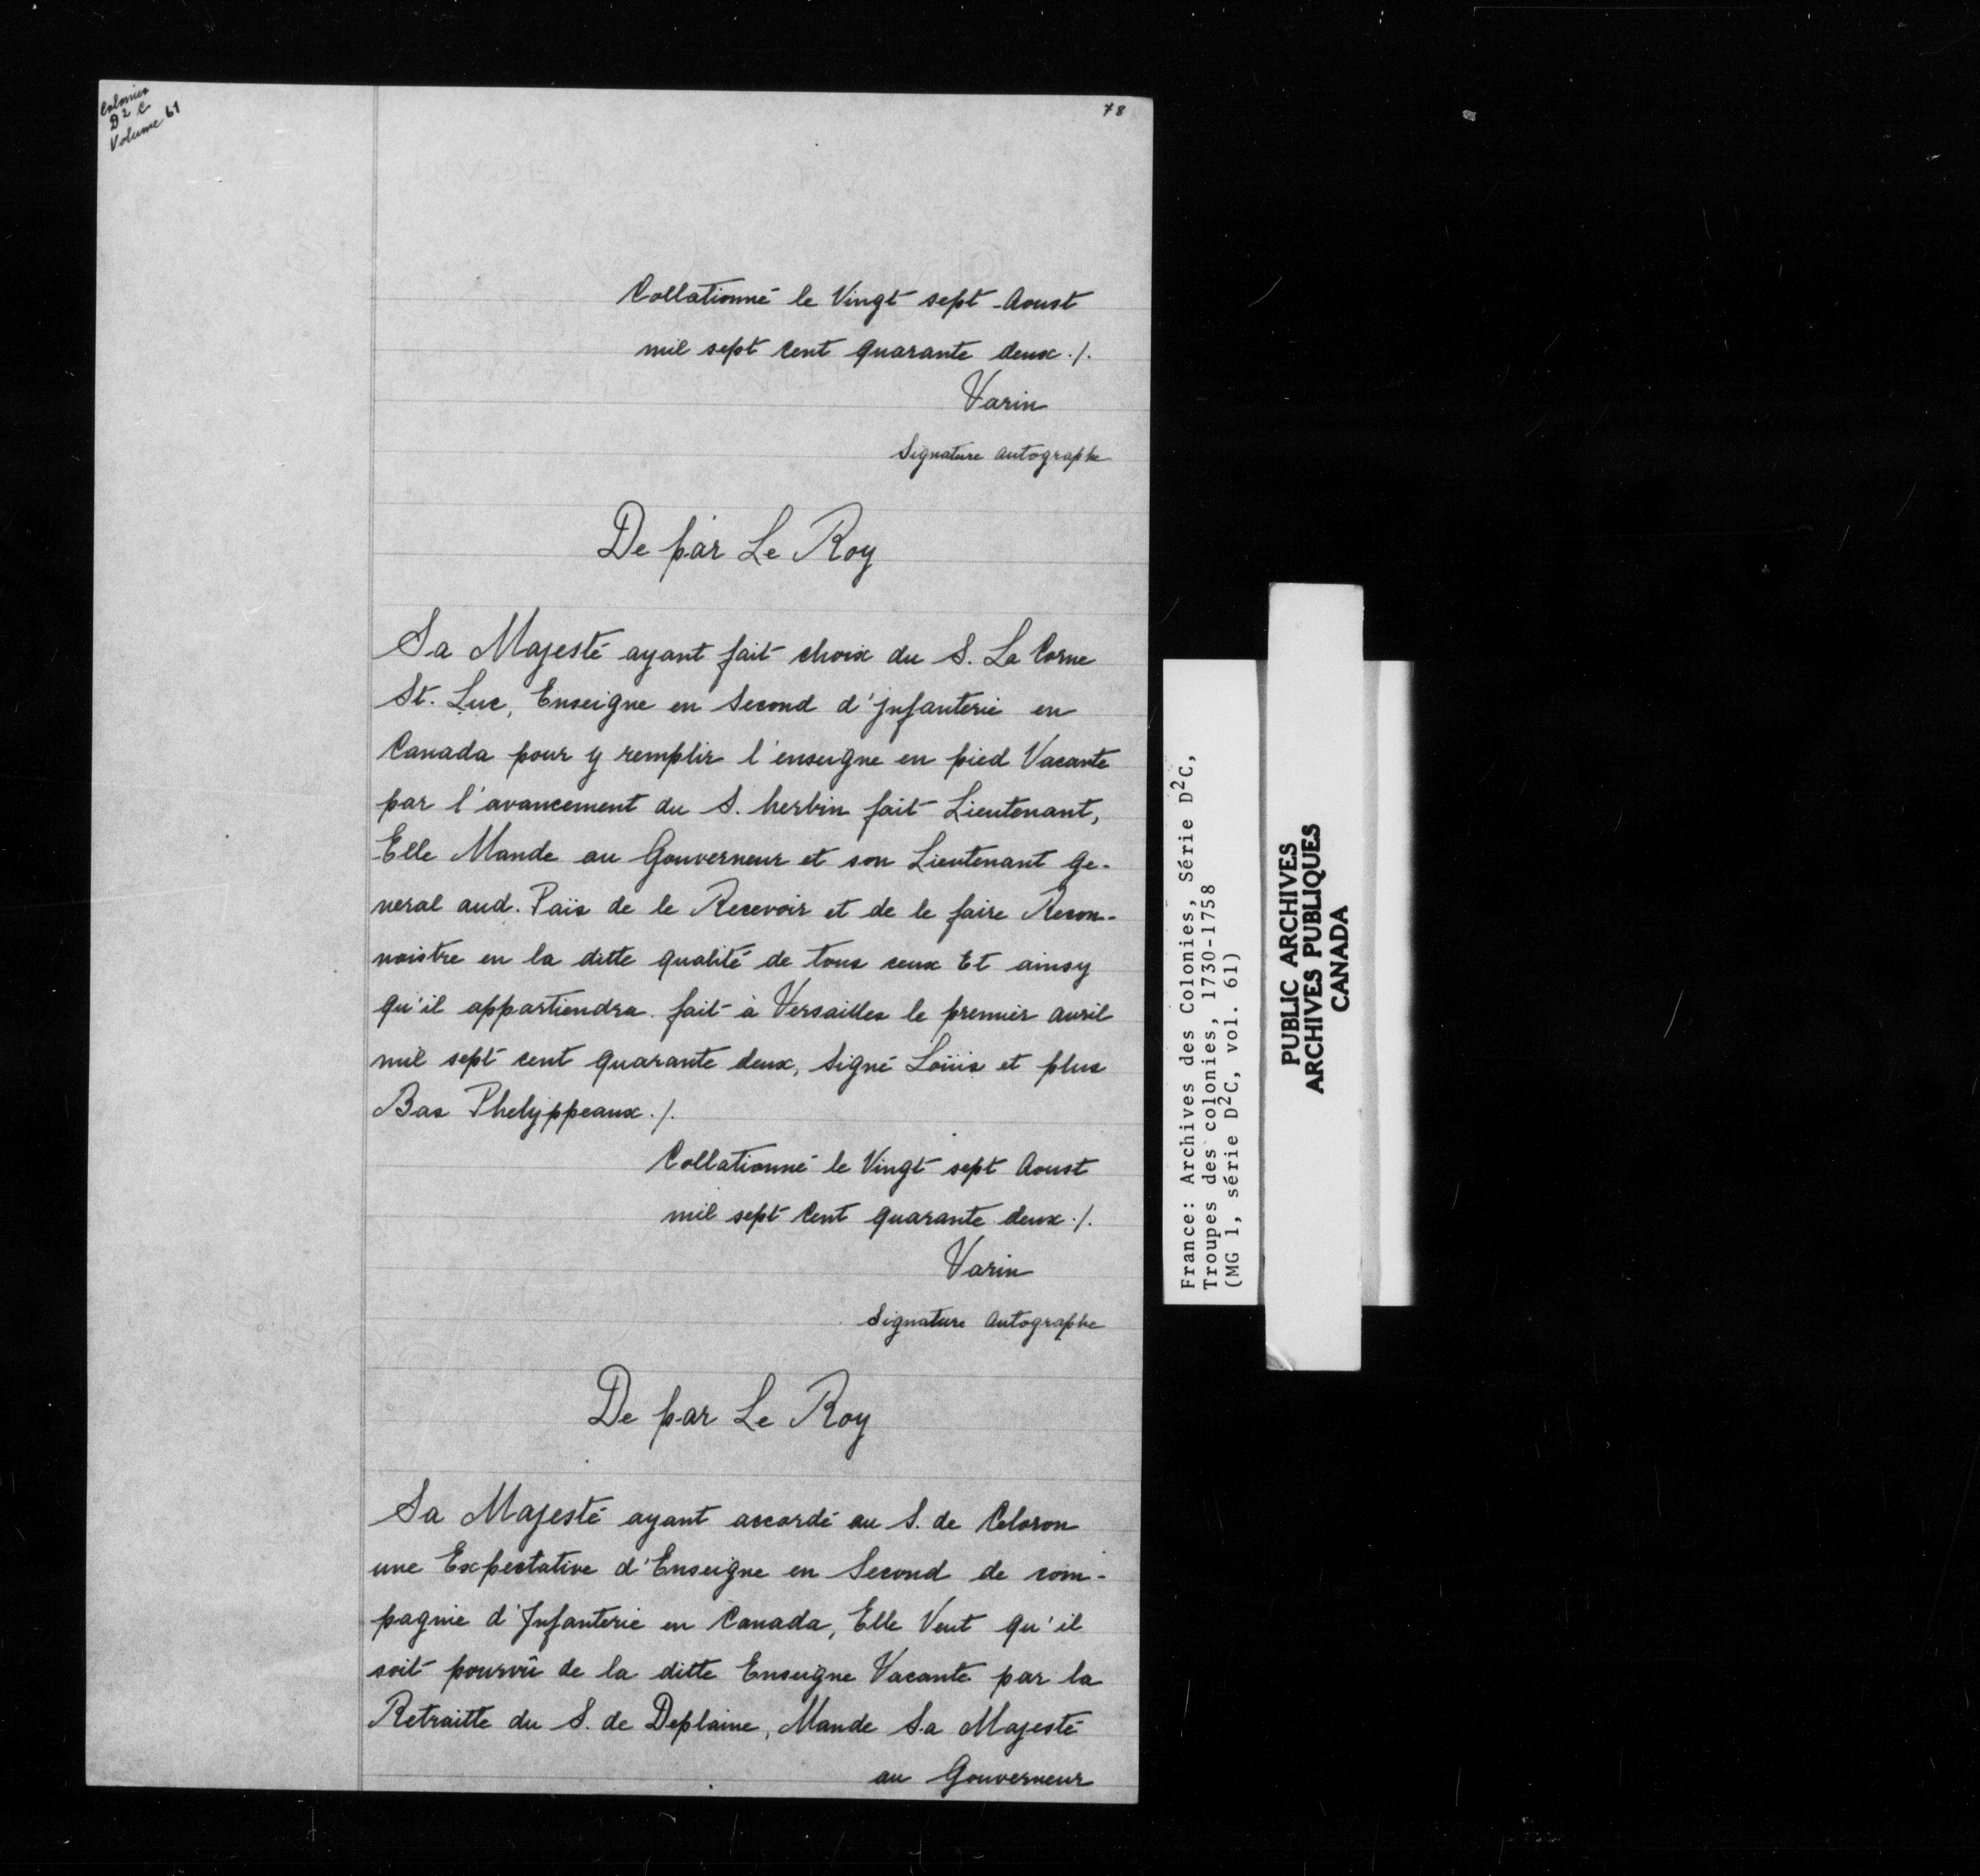 Colonies
D2 C
Volume 61
78
Collationné le Vingt sept Aoust
mil sept Cent quarante deux ./.
Varin
Signature autographe
De par Le Roy
Sa Majesté ayant fait choix du S. La Corne
St. Luc, Enseigne en Second d'jnfanterie en
Canada pour y remplir l'enseigne en pied Vacante
par l'avancement du S. herbin fait Lieutenant,
Elle Mande au Gouverneur et son Lieutenant Ge-
neral aud. Païs de le Recevoir et de le faire Recon-
noistre en la ditte qualité de tous ceux Et ainsy
qu'il appartiendra. fait à Versailles le premier avril
mil sept cent quarante deux, Signé Loüis et plus
Bas Phelyppeaux ./.
Collationné le Vingt sept Aoust
mil sept Cent quarante deux ./.
Varin
Signature Autographe
De par Le Roy
Sa Majesté ayant accordé au S. de Celoron
une Expectative d'Enseigne en Second de com-
pagnie d'Jnfanterie en Canada, Elle Veut qu'il
soit pourvû de la ditte Enseigne Vacante par la
Retraitte du S. de Deplaine, Mande Sa Majesté
au Gouverneur
France: Archives des Colonies, Série D2C,
Troupes des colonies, 1730-1758
(MG 1, série D2C, vol. 61)
PUBLIC ARCHIVES
ARCHIVES PUBLIQUES
CANADA